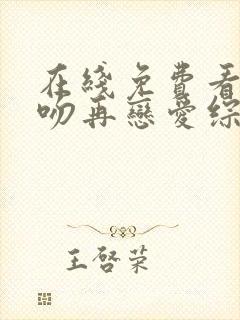 在綫免費看
吻再戀愛綜
王啓荣